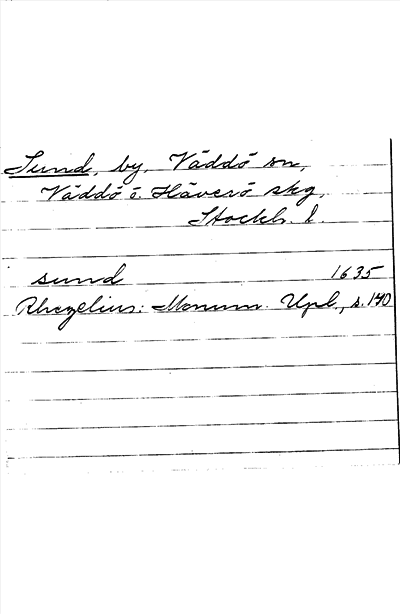 Sund, by, Väddö sn,
Väddö o. Häverö skg,
Stockh. l.
sund 1635
Rhezelius: Monum. Upl., s. 140